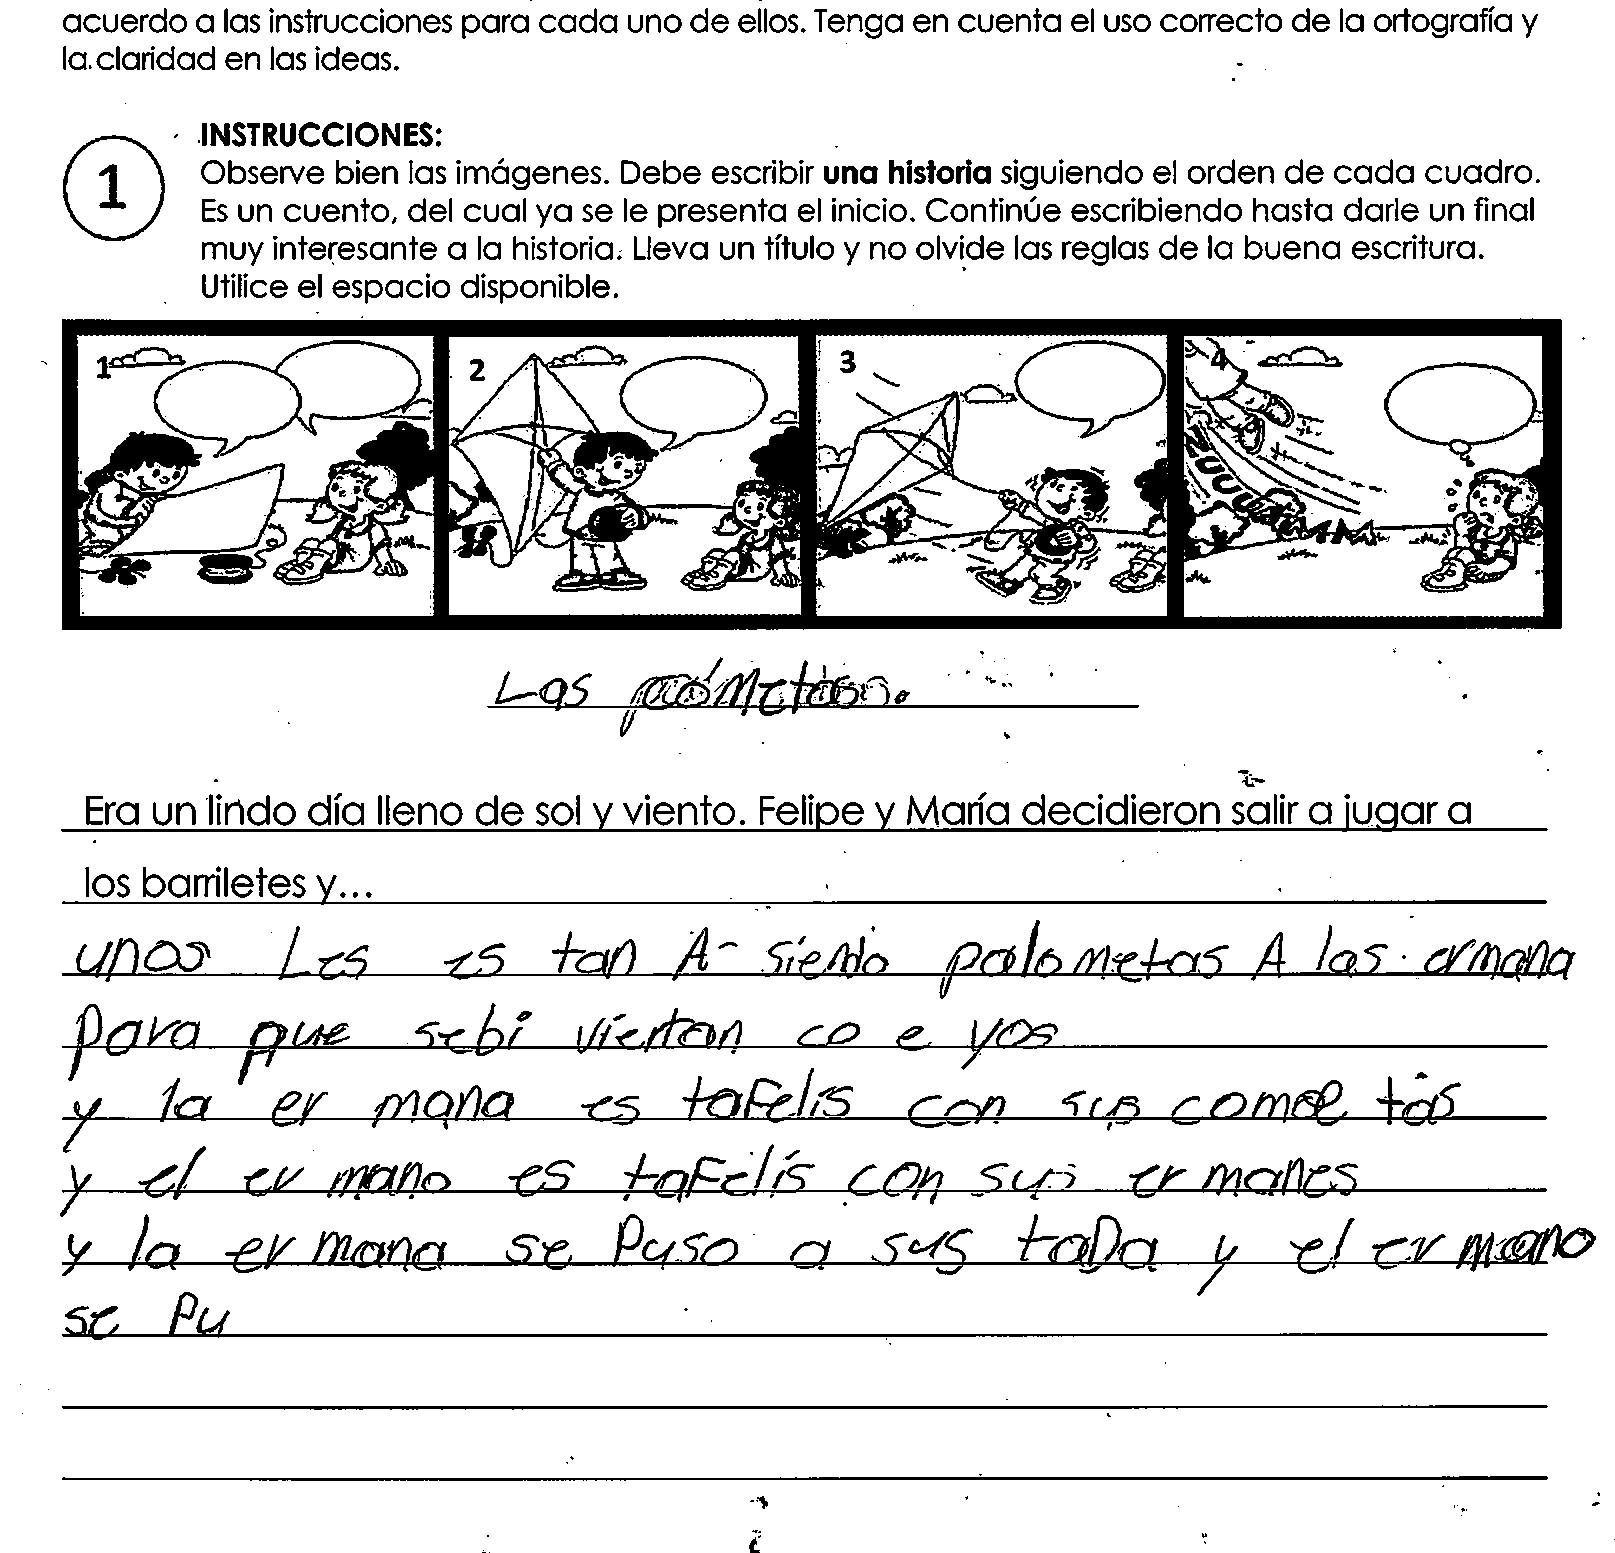 acuerdo a las instrucciones para cada uno de ellos. Tenga en cuenta el uso correcto de la ortografía y
la claridad en las ideas.
1
INSTRUCCIONES:
Observe bien las imágenes. Debe escribir una historia siguiendo el orden de cada cuadro.
Es un cuento, del cual ya se le presenta el inicio. Continúe escribiendo hasta darle un final
muy interesante a la historia. Lleva un título y no olvide las reglas de la buena escritura.
Utilice el espacio disponible.
1 2 3 4
Las
Era un lindo día lleno de sol y viento. Felipe y María decidieron salir a jugar a
los barriletes y...
unos Les es tan A- siendo palometas A las ermana
para que sebi viertan co e yos
y la er mana es tafelis con sus come tas
y el er mano es tafelis con sus er manes
y la er mana se Puso a sus taDa y el er mano
se Pu